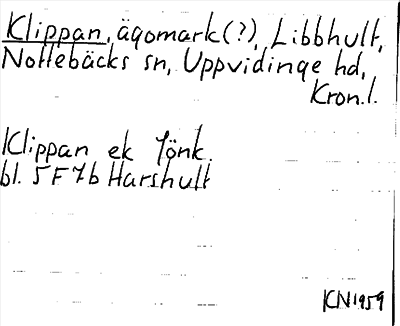 Klippan, ägomark(?), Libbhult,
Nottebäcks sn, Uppvidinge hd,
Kron.l.
Klippan ek Jönk.
bl. 5F7b Harshult
KN1959